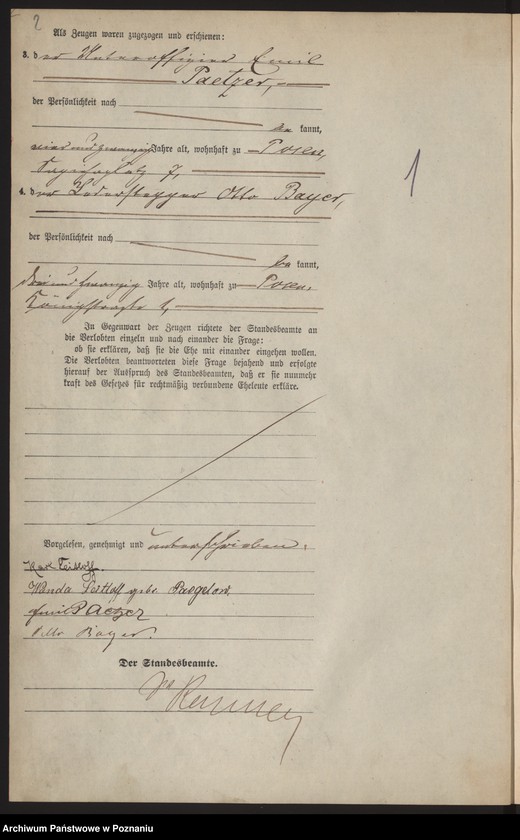 2
Als Zeugen waren zugezogen und erschienen:
3. der Unteroffizier Emil
Paetzer,
der Persönlichkeit nach
be kannt,
vierundzwanzig Jahre alt, wohnhaft zu Posen,
Sapiehaplatz 7,
4. der Lederstepper Otto Bayer,
der Persönlichkeit nach
be kannt,
dreiundzwanzig Jahre alt, wohnhaft zu Posen,
Königstraße 1,
1
In Gegenwart der Zeugen richtete der Standesbeamte an
die Verlobten einzeln und nach einander die Frage:
ob sie erklären, daß sie die Ehe mit einander eingehen wollen.
Die Verlobten beantworteten diese Frage bejahend und erfolgte
hierauf der Ausspruch des Standesbeamten, daß er sie nunmehr
kraft des Gesetzes für rechtmäßig verbundene Eheleute erkläre.
Vorgelesen, genehmigt und unterschrieben:
Karl
Wanda geb.
Emil Paetzer
Otto Bayer.
Der Standesbeamte.
Archiwum Państwowe w Poznaniu